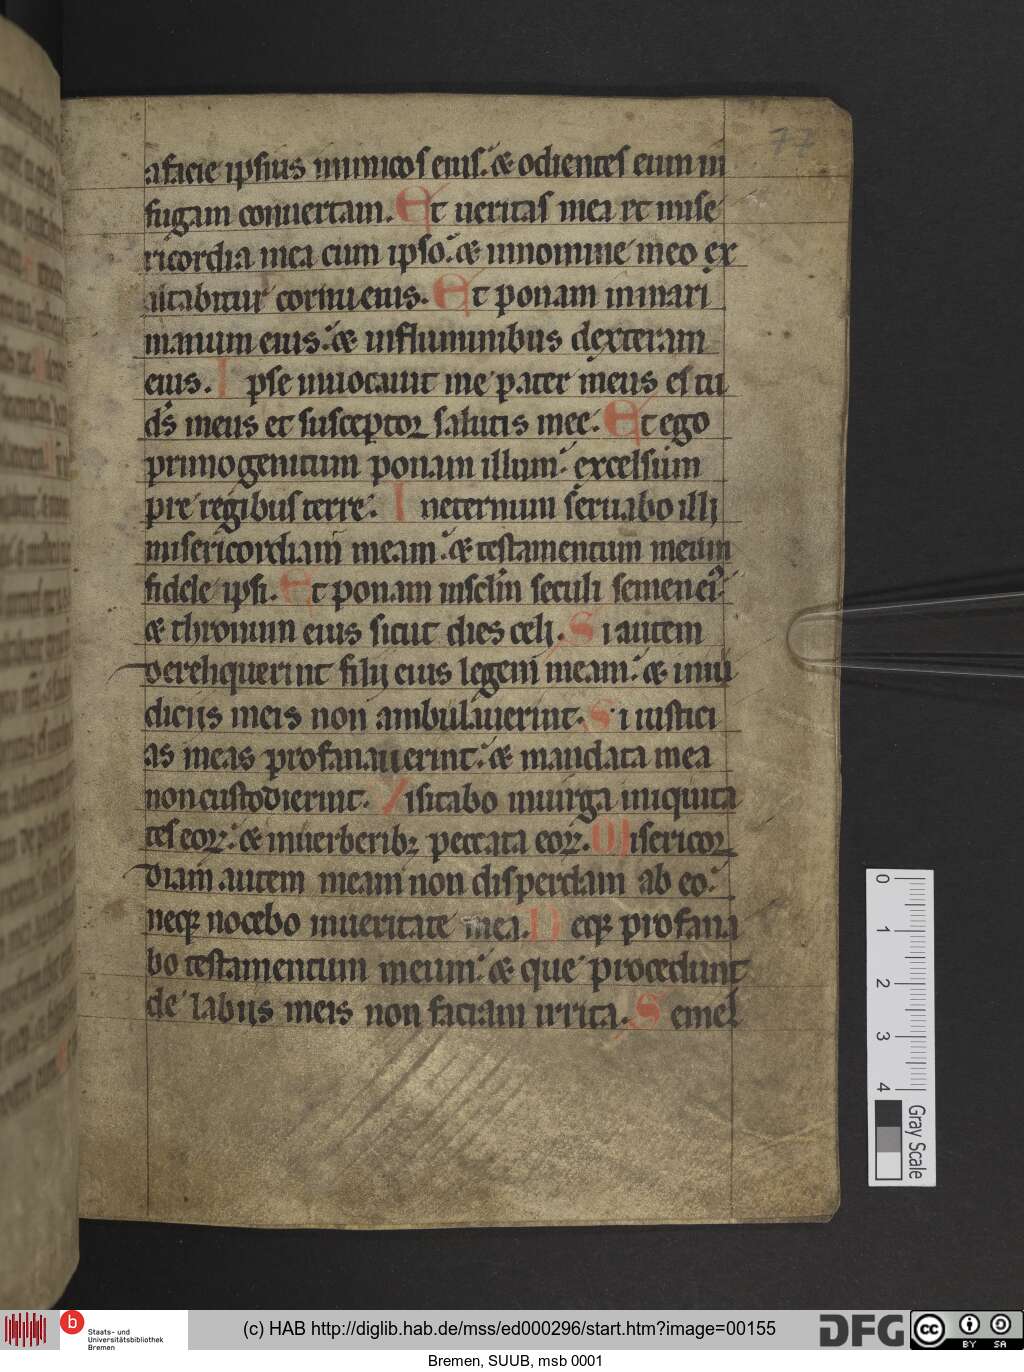 77
afacie ipsius inimicos eius. & odientes eum in
fugam conuertam. Et ueritas mea et mise
ricordia mea cum ipso. & innomine meo ex
altabitur cornu eius. Et ponam in mari
manum eius. & influminibus dexteram
eius. Ipse inuocauit me pater meus es tu
ds meus et susceptor salutis mee. Et ego
primogenitum ponam illum. excelsum
pre regibus terre. Ineternum seruabo illi
misericordiam meam. & testamentum meum
fidele ipsi. Et ponam insclm seculi semen ei9.
& thronum eius sicut dies celi. Si autem
dereliquerint filij eius legem meam. & in iu
diciis meis non ambulauerint. Si iustici
as meas profanauerint. & mandata mea
non custodierint. Visitabo inuirga iniquita
tes eoꝝ. & inuerberibꝫ peccata eoꝝ. Misericor
diam autem meam non disperdam ab eo.
neqꝫ nocebo inueritate mea. Neqꝫ profana
bo testamentum meum. & que procedunt
de labiis meis non faciam irrita. Semel
0
1
2
3
4
Gray Scale
b
Staats- und
Universitätsbibliothek
Bremen
(c) HAB http://diglib.hab.de/mss/ed000296/start.htm?image=00155
DFG
cc BY SA
Bremen, SUUB, msb 0001